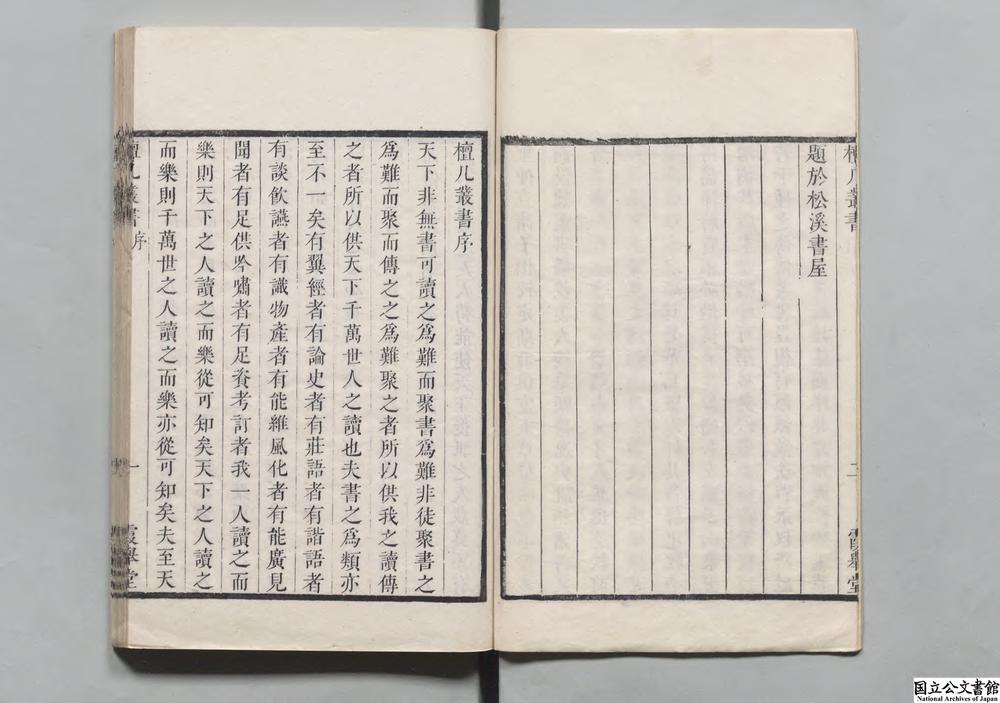 檀几叢書
二
霞舉堂
題於松溪書屋
檀几叢書序
天下非無書可讀之爲難而聚書爲難非徒聚書之
爲難而聚而傳之之爲難聚之者所以供我之讀傳
之者所以供天下千萬世人之讀也夫書之爲類亦
至不一矣有翼經者有論史者有莊語者有諧語者
有談飲讌者有識物產者有能維風化者有能廣見
聞者有足供吟嘯者有足資考訂者我一人讀之而
樂則天下之人讀之而樂從可知矣天下之人讀之
而樂則千萬世之人讀之而樂亦從可知矣夫至天
檀几叢書
序
一
霞舉堂
国立公文書館
National Archives of Japan